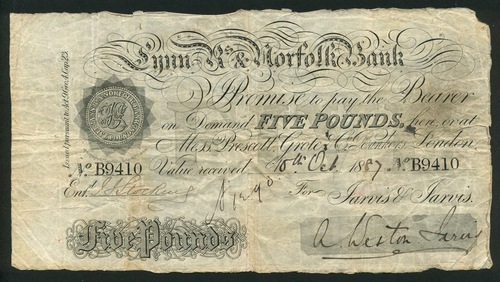 Lynn Rs & Norfolk Bank
I Promise to pay the Bearer
on Demand FIVE POUNDS, here or at
Messrs Prescott, Grote & Co Bankers London
Value received 10th Oct 1887
No B9410 No B9410
Entd
For Jarvis & Jarvis.
Five Pounds
A Weston Jarvis